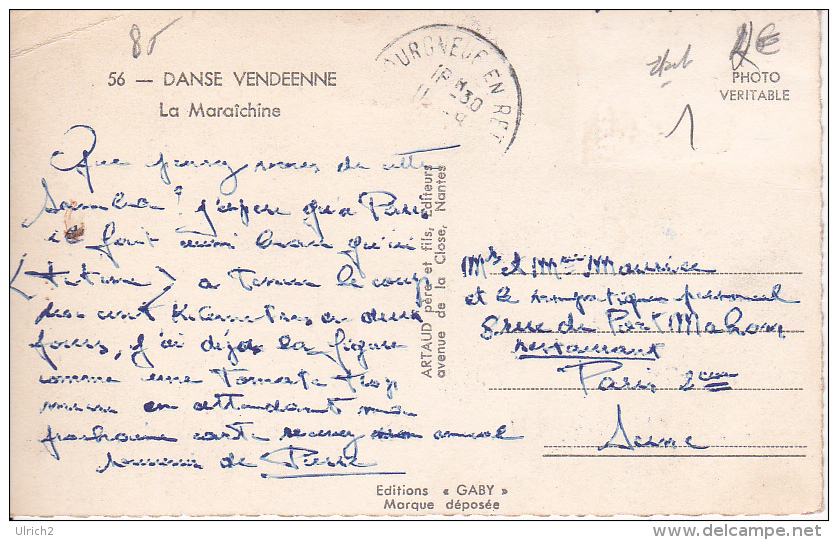 85
56 — DANSE VENDEENNE
La Maraîchine
OURGNEUF EN RETZ
18 H 30
PHOTO
VERITABLE
1
Que pensez vous de cette
Samba ? j'espère qu'à Paris
il fait aussi beau qu'ici
Titine a tenue le coup
plus cent Kilomètres en deux
jours, j'ai déjà la figure
comme une tomate trop
mure en attendant ma
prochaine carte recevez mon amical
souvenir de Pierre
ARTAUD père et fils, Editeurs
avenue de la Close, Nantes
Mr et Mme Maurice
et le sympathique personnel
8 rue du Port Mahon
restaurant
Paris 2ème
Seine
Editions « GABY »
Marque déposée
Ulrich2
www.delcampe.net